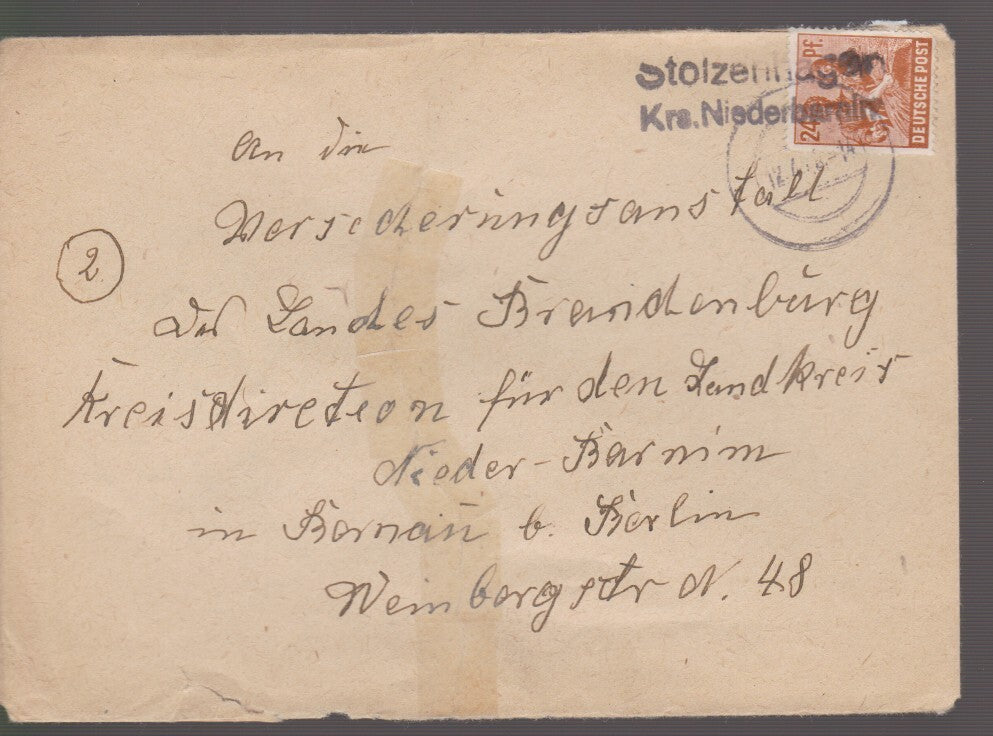 Stolzenhagen
Krs. Niederbarnim
24 Pf.
DEUTSCHE POST
An die
Versicherungsanstalt
2
des Landes Brandenburg
Kreisdirektion für den Landkreis
Nieder-Barnim
in Bernau b. Berlin
Weinbergstr N. 48